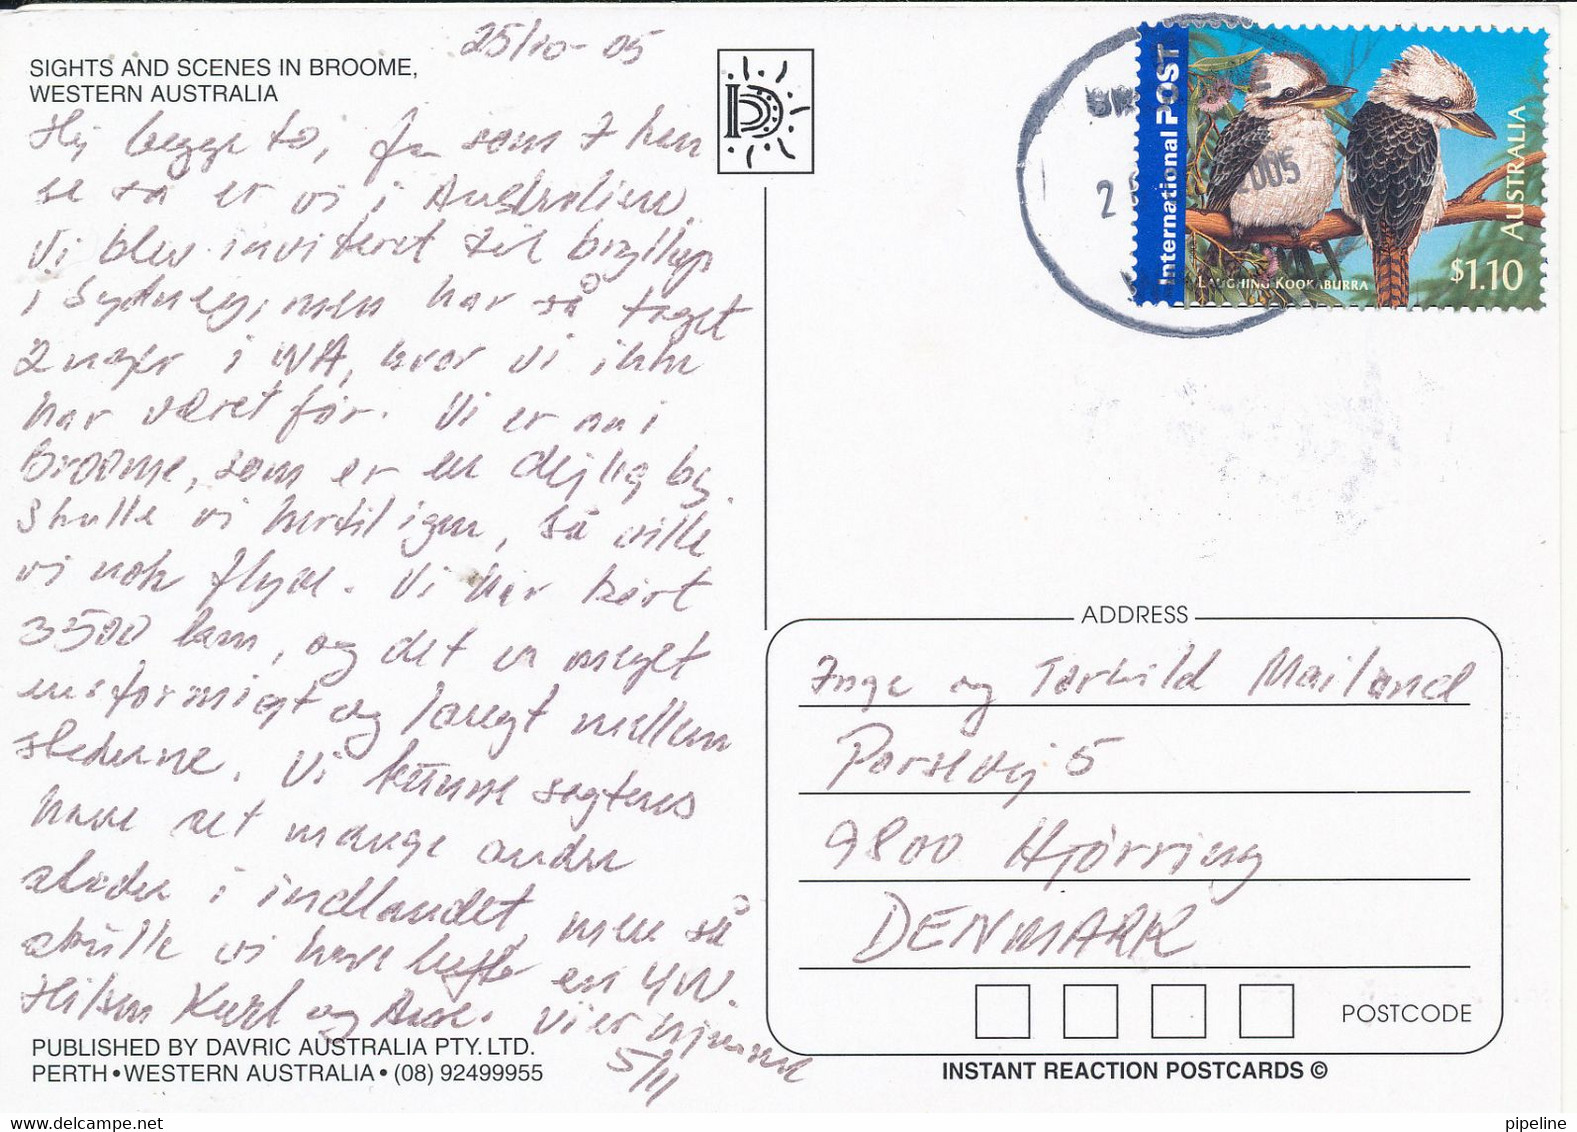 25/10-05
SIGHTS AND SCENES IN BROOME,
WESTERN AUSTRALIA
Hej begge to, som I kan
se så er vi i Australien.
Vi blev inviteret til bryllup
i Sydney, men har så taget
2 uger i WA, hvor vi ikke
har været før. Vi er nu i
Broome, som er en dejlig by.
Skulle vi hertil igen, så ville
vi nok flyve. Vi har kørt
3500 km, og det er meget
ensformigt og langt mellem
stederne. Vi kunne sagtens
have set mange andre
steder i indlandet, men så
skulle vi have lejet en 4W.
Hilsen Kurt og Aase. Vi er hjemme
5/11
PUBLISHED BY DAVRIC AUSTRALIA PTY. LTD.
PERTH • WESTERN AUSTRALIA • (08) 92499955
International POST
2005
LAUGHING KOOKABURRA
$1.10
AUSTRALIA
ADDRESS
Inge og Torkild Mailand
Porsevej 5
9800 Hjørring
DENMARK
POSTCODE
INSTANT REACTION POSTCARDS ©
pipeline